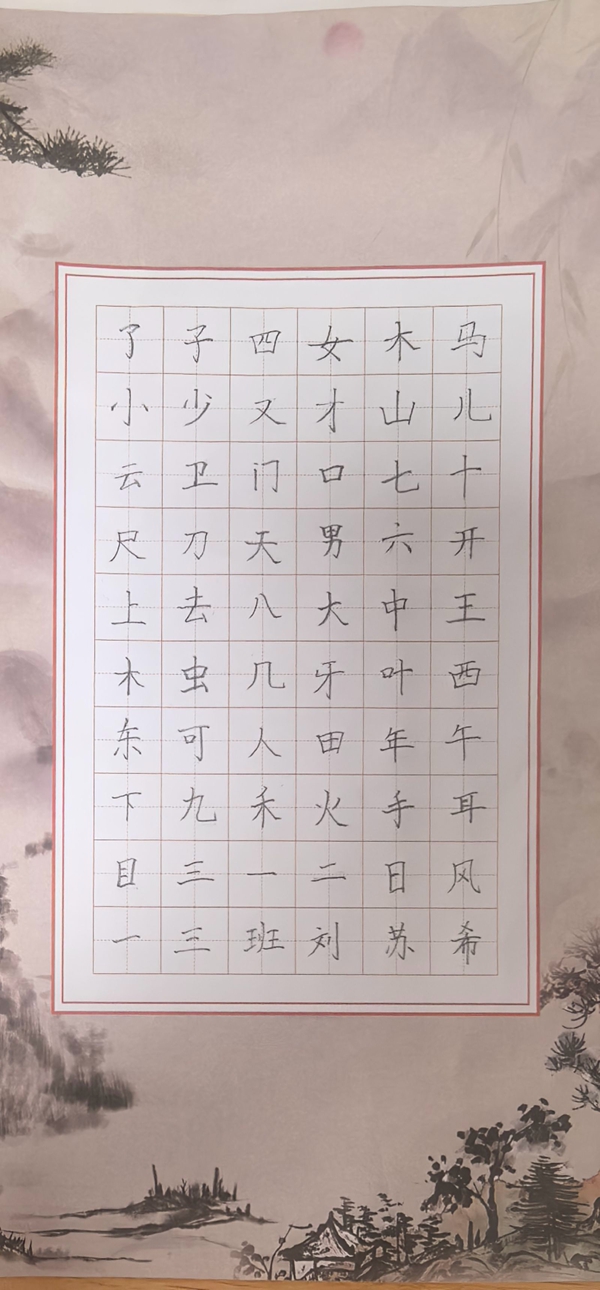 了子四女木马
小少又才山儿
云卫门口七十
尺刀天男六开
上去八大中王
木虫几牙叶西
东可人田年午
下九禾火手耳
目三一二日风
一三班刘苏希